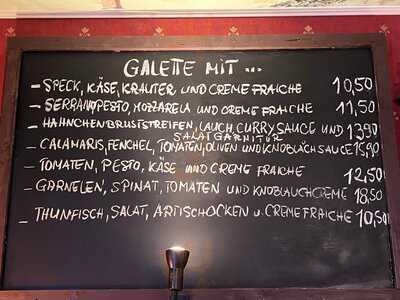 GALETTE MIT ...
- SPECK, KÄSE, KRÄUTER UND CREME FRAICHE 10,50
- SERRANO, PESTO, MOZZARELA UND CREME FRAICHE 11,50
- HÄHNCHENBRUSTSTREIFEN, LAUCH, CURRY SAUCE UND SALATGARNITUR 13,90
- CALAMARIS, FENCHEL, TOMATEN, OLIVEN UND KNOBLAUCH SAUCE 15,90
- TOMATEN, PESTO, KÄSE UND CREME FRAICHE 12,50
- GARNELEN, SPINAT, TOMATEN UND KNOBLAUCHCREME 18,50
- THUNFISCH, SALAT, ARTISCHOCKEN U. CREME FRAICHE 10,50